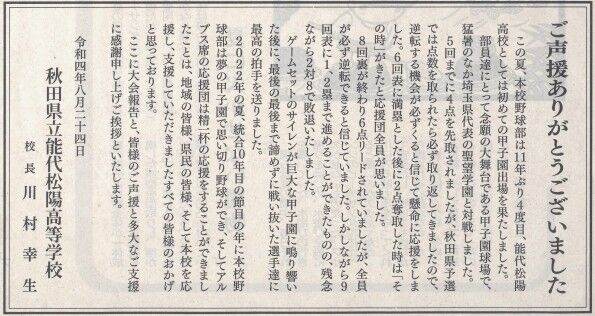 ご声援ありがとうございました
この夏、本校野球部は11年ぶり4度目、能代松陽
高校としては初めての甲子園出場を果たしました。
部員達にとって念願の大舞台である甲子園球場で、
猛暑のなか埼玉県代表の聖望学園と対戦しました。
5回までに4点を先取されましたが、秋田県予選
では点数を取られたら必ず取り返してきましたので、
逆転する機会が必ずくると信じて懸命に応援をしま
した。6回表に満塁とした後に2点奪取した時は「そ
の時」がきたと応援団全員が思いました。
8回裏が終わり6点リードされていましたが、全員
が必ず逆転できると信じていました。しかしながら9
回表に1、2塁まで進めることができたものの、残念
ながら2対8で敗退いたしました。
ゲームセットのサイレンが巨大な甲子園に鳴り響い
た後に、最後の最後まで諦めずに戦い抜いた選手達に
最高の拍手を送りました。
2022年の夏、統合10年目の節目の年に本校野
球部は夢の甲子園で思い切り野球ができ、そしてアル
プス席の応援団は精一杯の応援をすることができまし
たことは、地域の皆様、県民の皆様、そして本校を応
援し、支援していただきましたすべての皆様のおかげ
と思っております。
ここに大会報告と、皆様のご声援と多大なご支援
に感謝申し上げご挨拶といたします。
令和四年八月二十四日
秋田県立能代松陽高等学校
校長 川村幸生